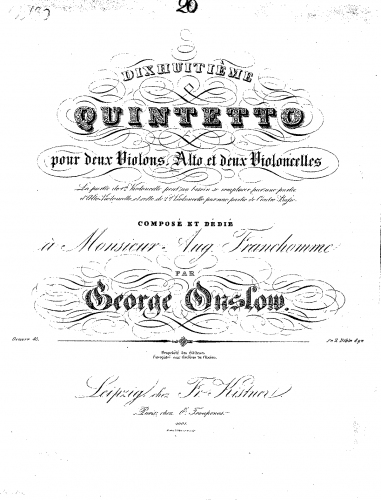 20
DIXHUITIÈME
QUINTETTO
pour deux Violons, Alto et deux Violoncelles
La partie du 1er Violoncelle peut au besoin se remplacer par une partie
d'Alto Violoncelle, et celle de 2d Violoncelle par une partie de Contre Basse.
COMPOSÉ ET DÉDIÉ
à Monsieur Aug. Franchomme
PAR
George Onslow.
Oeuvre 45.
Propriété des éditeurs.
Leipzig, chez Fr. Kistner
Paris, chez E. Troupenas.